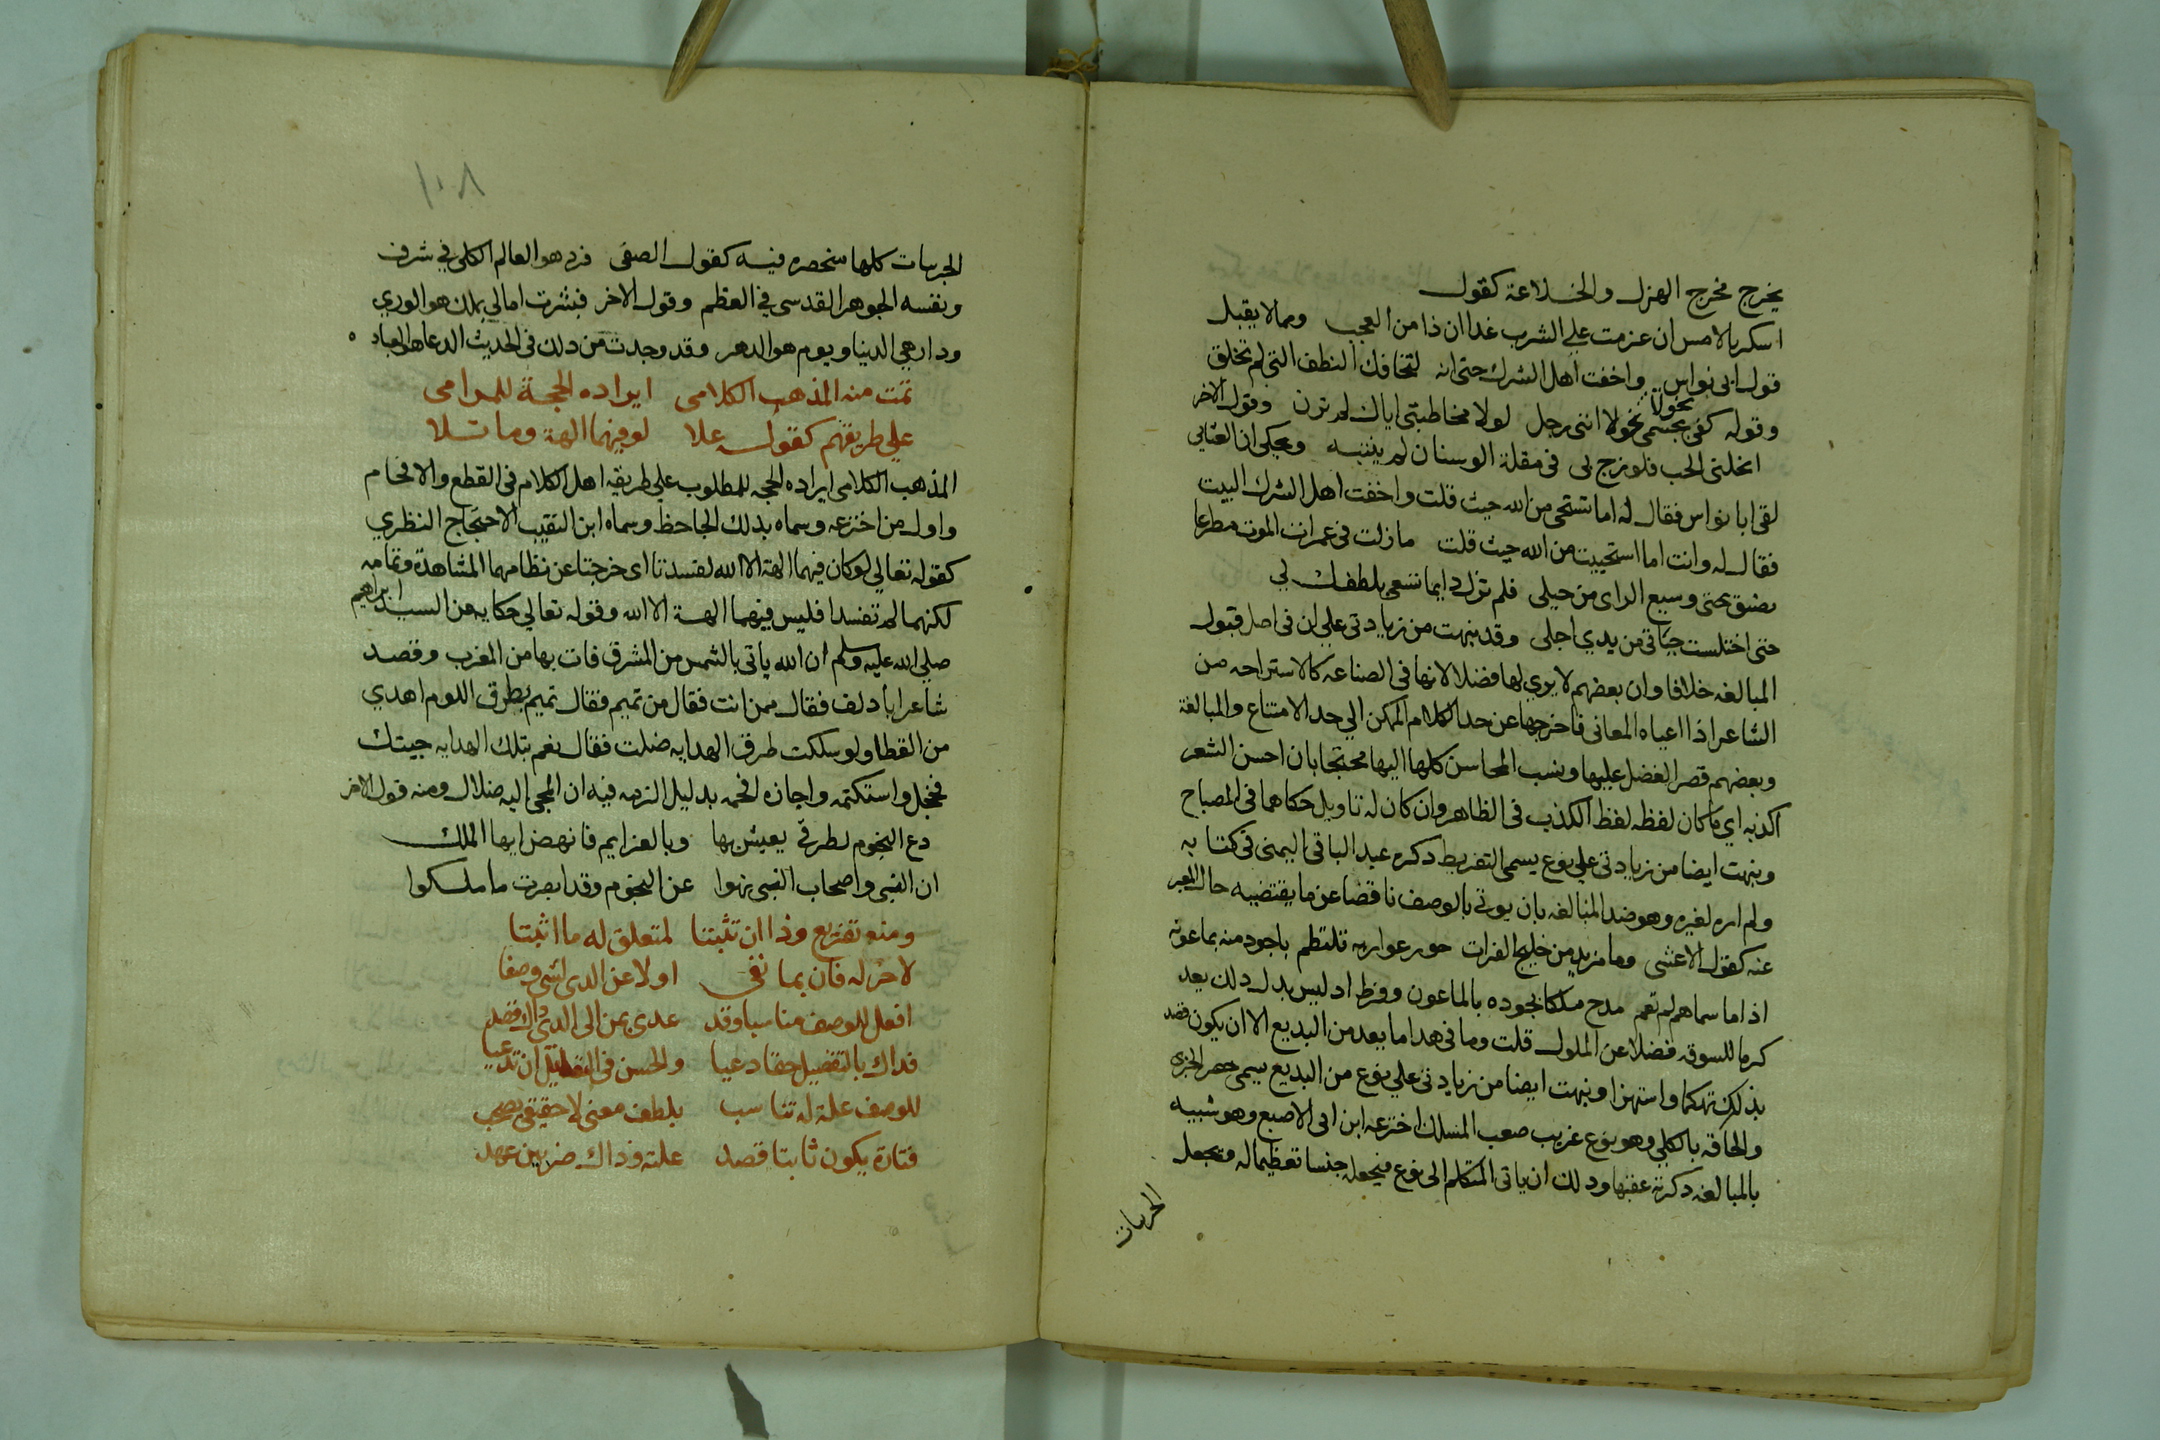 يخرج مخرج الهزل والخلاعة كقول
اسكر بالامس ان عزمت علي الشرب غدا ان ذا من العجب ومما لا يقبل
قول ابي نواس واخفت اهل الشرك حتى انه لتخافك النطف التي لم تخلق
وقوله كفى بجسمى نحولا انني رجل لولا مخاطبتي اياك لم ترن وقول الاخر
نحولا
انحلني الحب فلو زج بي في مقلة الوسنان لم ينتبه ويحكى ان العتابي
لقى ابا نواس فقال له اما تستحى من الله حيث قلت واخفت اهل الشرك البيت
فقال له وانت اما استحييت من الله حيث قلت ما زلت في غمرات الموت مطرحا
يضيق عني وسيع الراى من حيلى فلم تزل دايما تسعى بلطفك لي
حتى اختلست حياتي من يدي اجلى وقد نبهت من زيادتي علي ان في اصل قبول
المبالغه خلافا وان بعضهم لا يري لها فضلا لانها في الصناعه كالاستراحه من
الشاعر اذا اعياه المعاني فاخرجها عن حد الكلام الممكن الي حد الامتناع والمبالغة
وبعضهم قصر الفضل عليها ونسب المحاسن كلها اليها محتجا بان احسن الشعر
اكذبه اي ما كان لفظه لفظ الكذب في الظاهر وان كان له تاويل حكاهما في المصباح
ونبهت ايضا من زيادتي علي نوع يسمى التفريط ذكره عبد الباقي اليمنى في كتابه
ولم اره لغيره وهو ضد المبالغه بان يوتي بالوصف ناقصا عن ما يقتضيه حال المعبر
عنه كقول الاعشى وما مزبد من خليج الفرات جون غواربه تلتطم باجود منه بماعونه
اذا ما سماهم لم تغم مدح ملكا بجوده بالماعون وفرط اذ ليس بذل ذلك يعد
كرما للسوقه فضلا عن الملوك قلت وما في هذا ما يعد من البديع الا ان يكون قصد
بذلك تهكما واستهزا ونبهت ايضا من زيادتي علي نوع من البديع يسمى حصر الجزء
والحاقه بالكلي وهو نوع غريب صعب المسلك اخترعه ابن ابي الاصبع وهو شبيه
بالمبالغه ذكرته عقبها وذلك ان ياتي المتكلم الى نوع فيجعله جنسا تعظيما له ويجعل
الجزيات
١٠٨
الجزيات كلها منحصره فيه كقول الصفى فرد هو العالم الكلي في شرف
ونفسه الجوهر القدسى في العظم وقول الاخر فبشرت امالي بملك هو الوري
ودار هي الدنيا ويوم هو الدهر وقد وجدت من ذلك في الحديث الدعا هو العباده
تمت منه المذهب الكلامى ايراده الحجة للمرامى
علي طريقهم كقول علا لو فيهما الهة وما تلا
المذهب الكلامى ايراده الحجه للمطلوب علي طريقه اهل الكلام في القطع والافحام
واول من اخترعه وسماه بذلك الجاحظ وسماه ابن النقيب الاحتجاج النظري
كقوله تعالي لو كان فيهما الهة الا الله لفسدتا اي خرجتا عن نظامهما المشاهدة وتمامه
لكنهما لم تفسدا فليس فيهما الهة الا الله وقوله تعالي حكايه عن السيد ابراهيم
صلي الله عليه وسلم ان الله ياتي بالشمس من المشرق فات بها من المغرب وقصد
شاعر ابا دلف فقال ممن انت فقال من تميم فقال تميم بطرق اللوم اهدي
من القطا ولو سلكت طرق الهدايه ضلت فقال نعم بتلك الهدايه جيتك
فخجل واستكتمه واجازه افحمه بدليل الزمه فيه ان المجى اليه ضلال ومنه قول الاخر
دع النجوم لطرقي يعيش بها وبالعزايم فانهض ايها الملك
ان النبى واصحاب النبى نهوا عن النجوم وقد ابصرت ما ملكوا
ومنه تفريع وذا ان تثبتا لمتعلق له ما اثبتا
لاخر له فان بما نفى اولا عن الذي لشى وصفا
افعل للوصف مناسبا وقد عدى بمن الى الذي ذاك قصد
فذاك بالتفضيل حقا دعيا والحسن في التعليل ان تدعيا
للوصف علة له تناسب بلطف معنى لا حقيقى يصحب
فتارة يكون ثابتا قصد علته وذاك ضربين عهد